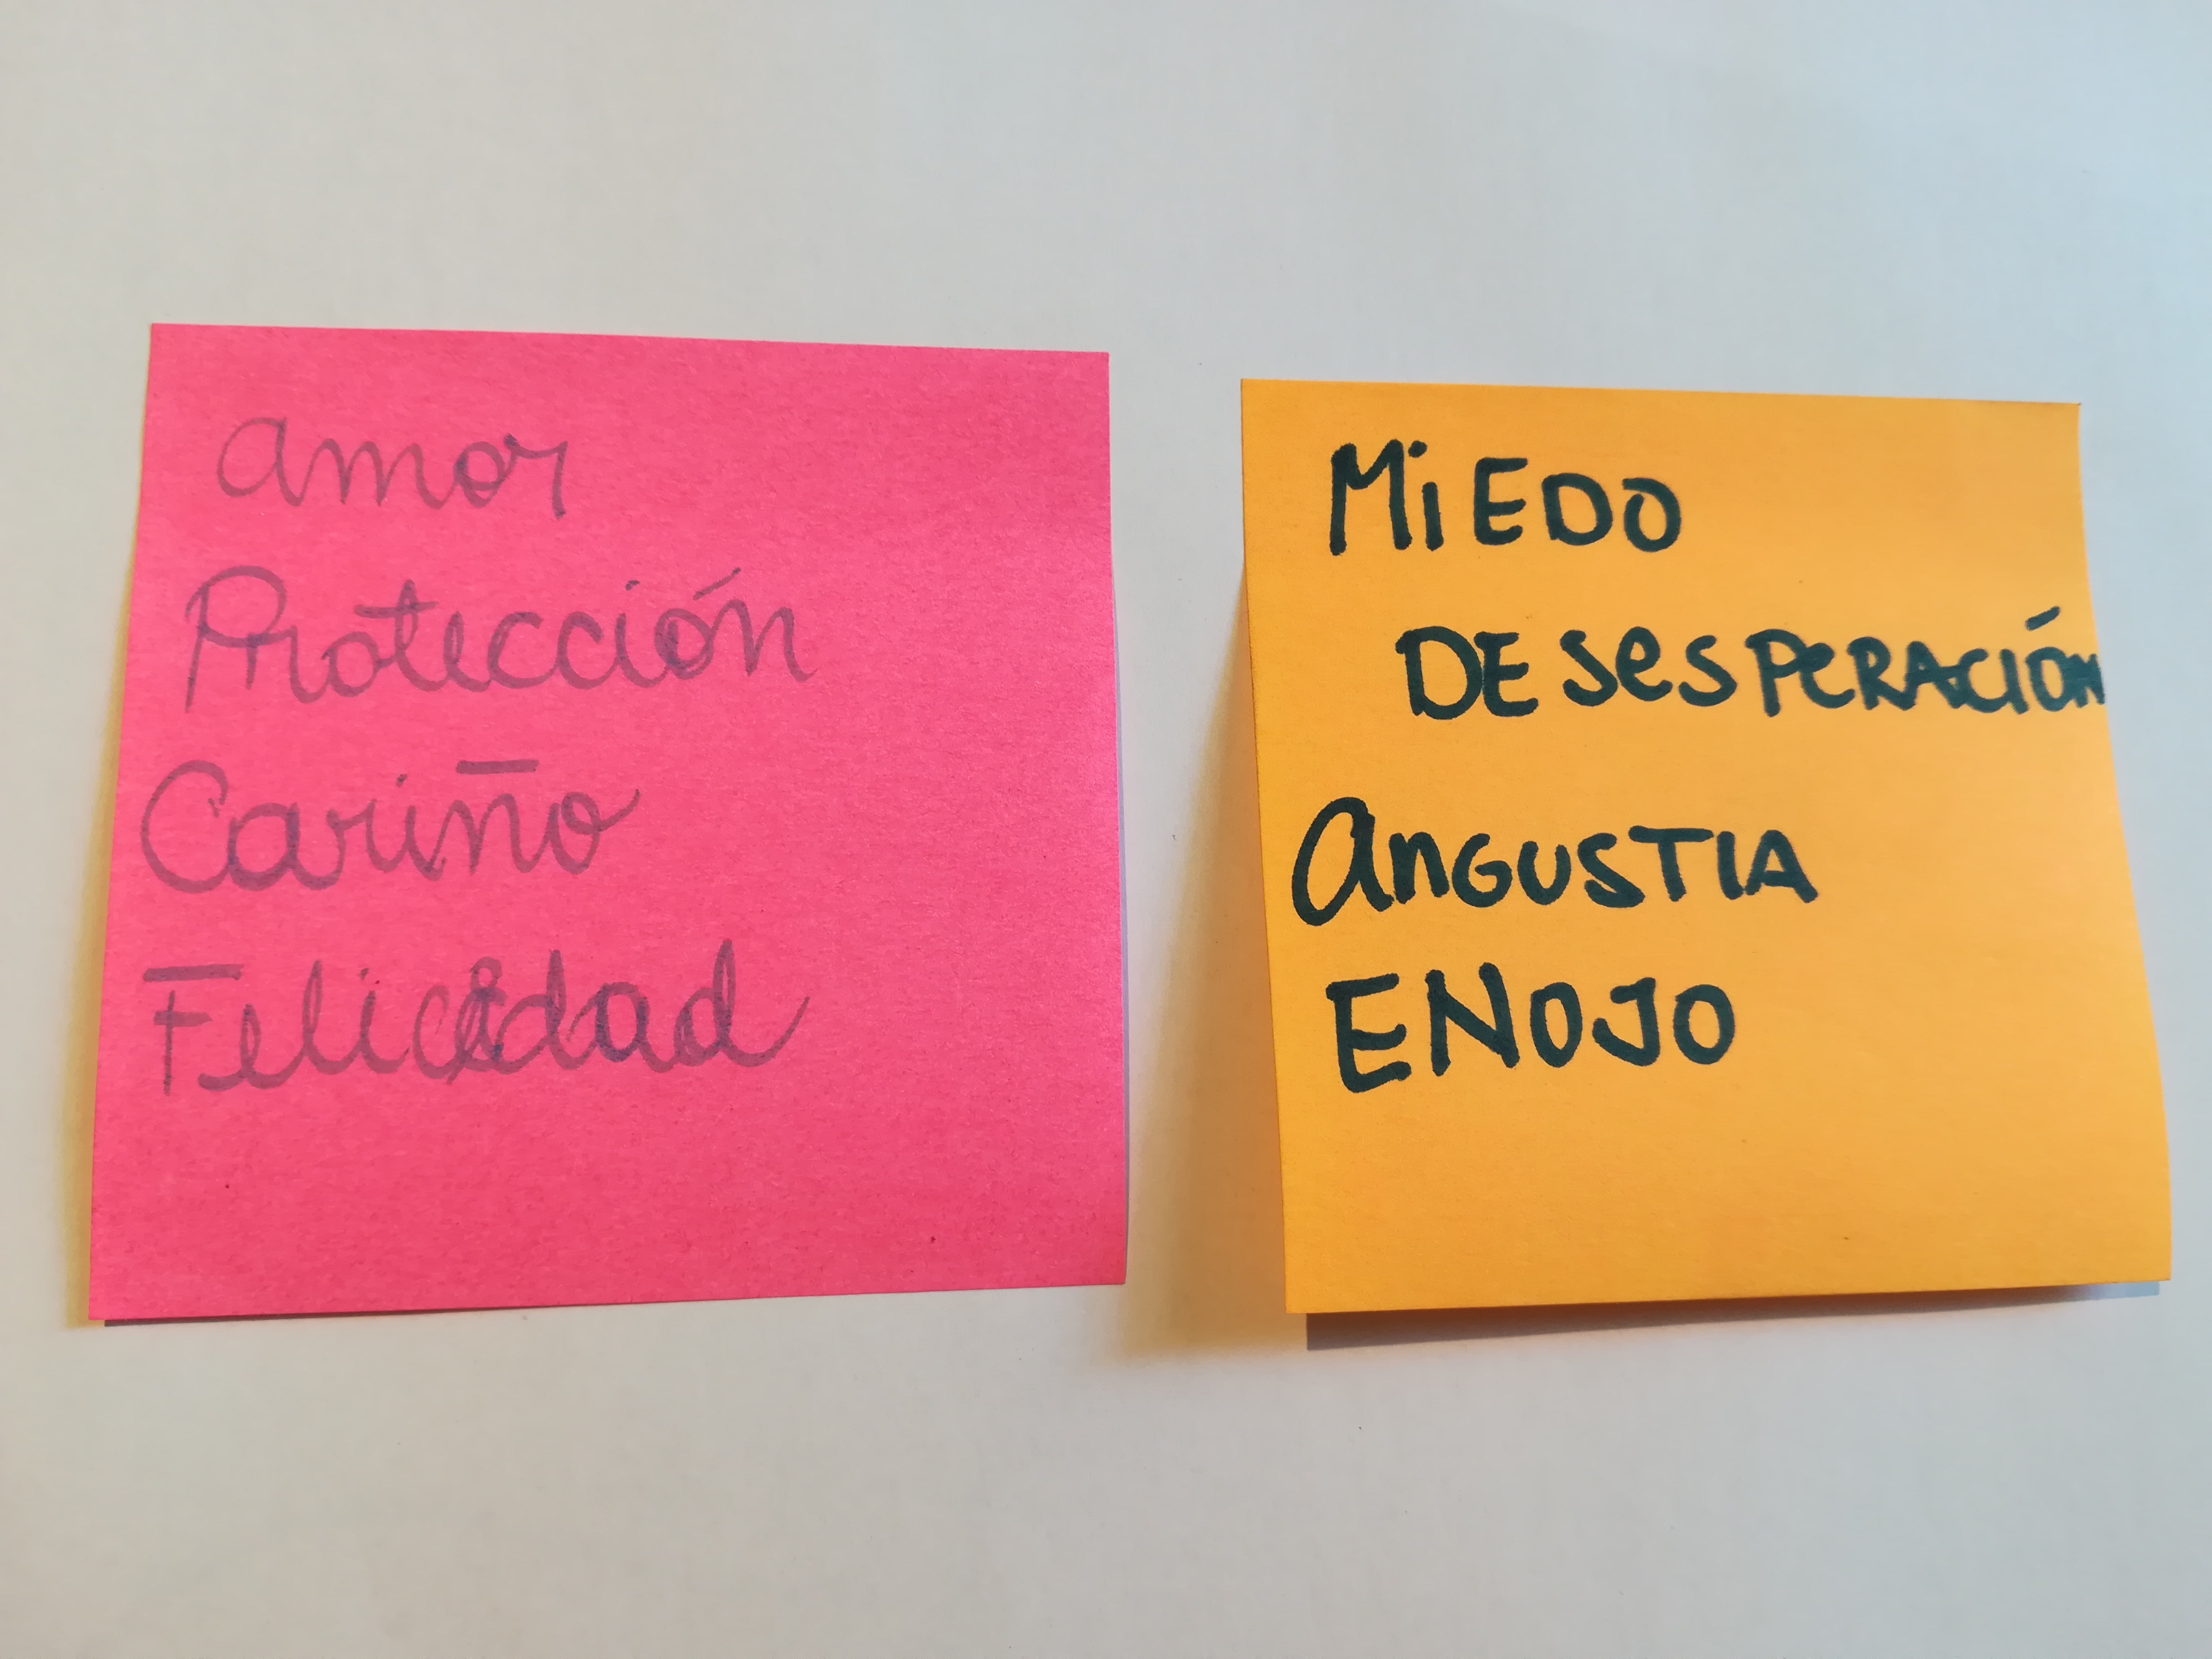 amor
Protección
Cariño
Felicidad
MiEDO
DESesPeRACIÓN
AnGUSTIA
ENOJO